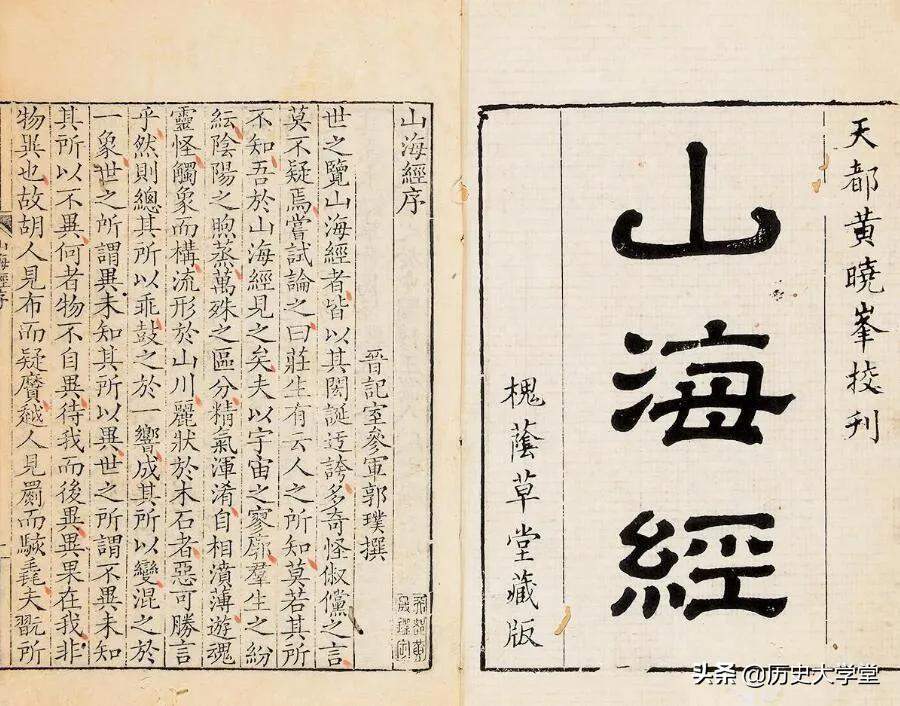 天都黄曉峯挍刋
山海經
槐蔭草堂藏版
山海經序
晉記室參軍郭璞撰
世之覽山海經者皆以其閎誕迂誇多奇怪俶儻之言
莫不疑焉嘗試論之曰莊生有云人之所知莫若其所
不知吾於山海經見之矣夫以宇宙之寥廓羣生之紛
紜陰陽之煦蒸萬殊之區分精氣渾淆自相濆薄遊魂
靈怪觸象而構流形於山川麗狀於木石者惡可勝言
乎然則總其所以乖鼓之於一響成其所以變混之於
一象世之所謂異未知其所以異世之所謂不異未知
其所以不異何者物不自異待我而後異異果在我非
物異也故胡人見布而疑黂越人見罽而駭毳夫翫所
山海經序
头条 @历史大学堂